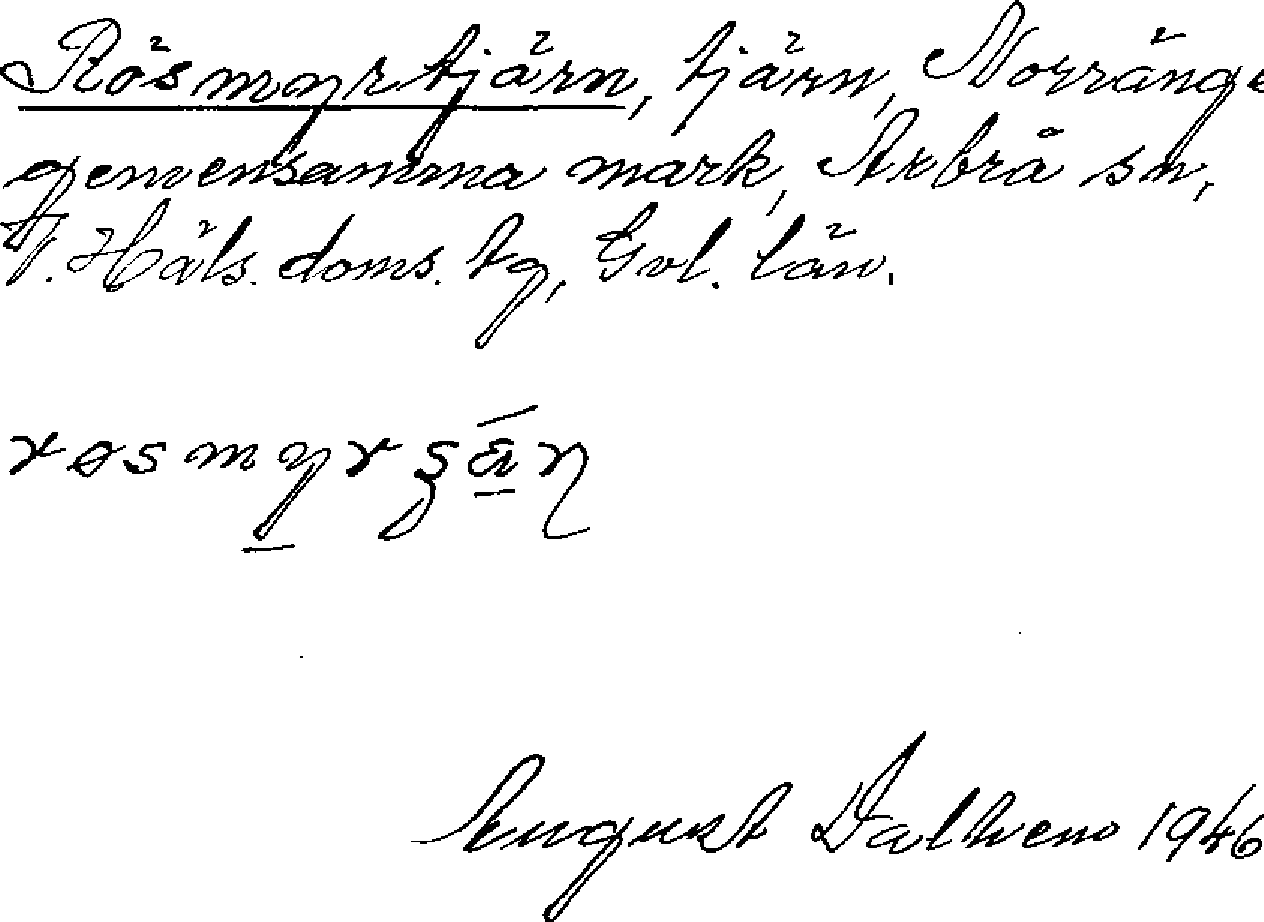 Rösmyrtjärn, tjärn, Norränge
gemensamma mark, Arbrå sn,
V. Häls. doms. tg, Gvl. län.
August Dalhem 1946